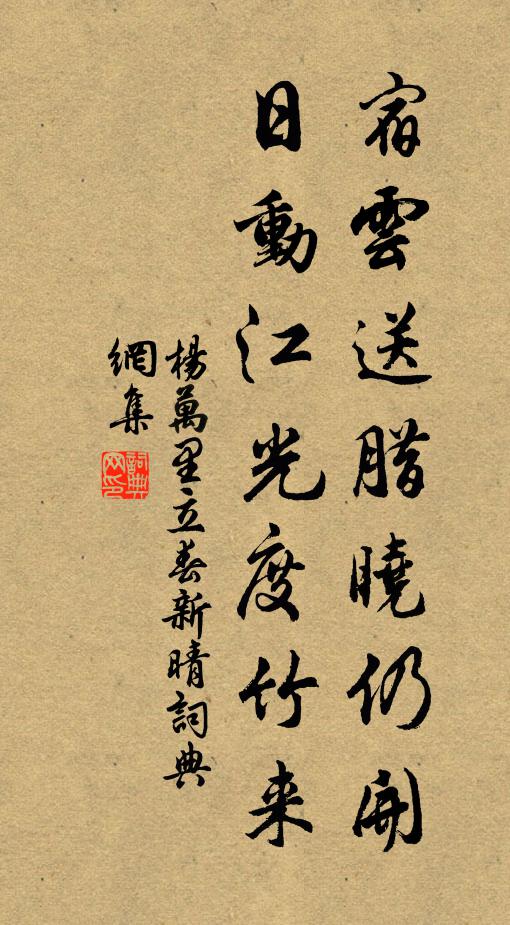 宿雲送腊曉仍開
日動江光度竹来
楊萬里立春新晴詞典
網集
詞典
网印